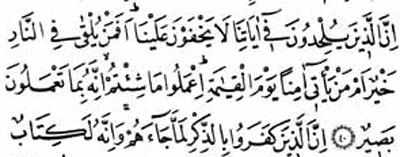 اِنَّ الَّذٖينَ يُلْحِدُونَ فٖٓى اٰيَاتِنَا لَا يَخْفَوْنَ عَلَيْنَاؕ اَفَمَنْ يُلْقٰى فِى النَّارِ
خَيْرٌ اَمْ مَنْ يَاْتٖٓى اٰمِنًا يَوْمَ الْقِيٰمَةِؕ اِعْمَلُوا مَا شِئْتُمْۙ اِنَّهُ بِمَا تَعْمَلُونَ
بَصٖيرٌ ﴿٤٠﴾ اِنَّ الَّذٖينَ كَفَرُوا بِالذِّكْرِ لَمَّا جَٓاءَهُمْۚ وَاِنَّهُ لَكِتَابٌ